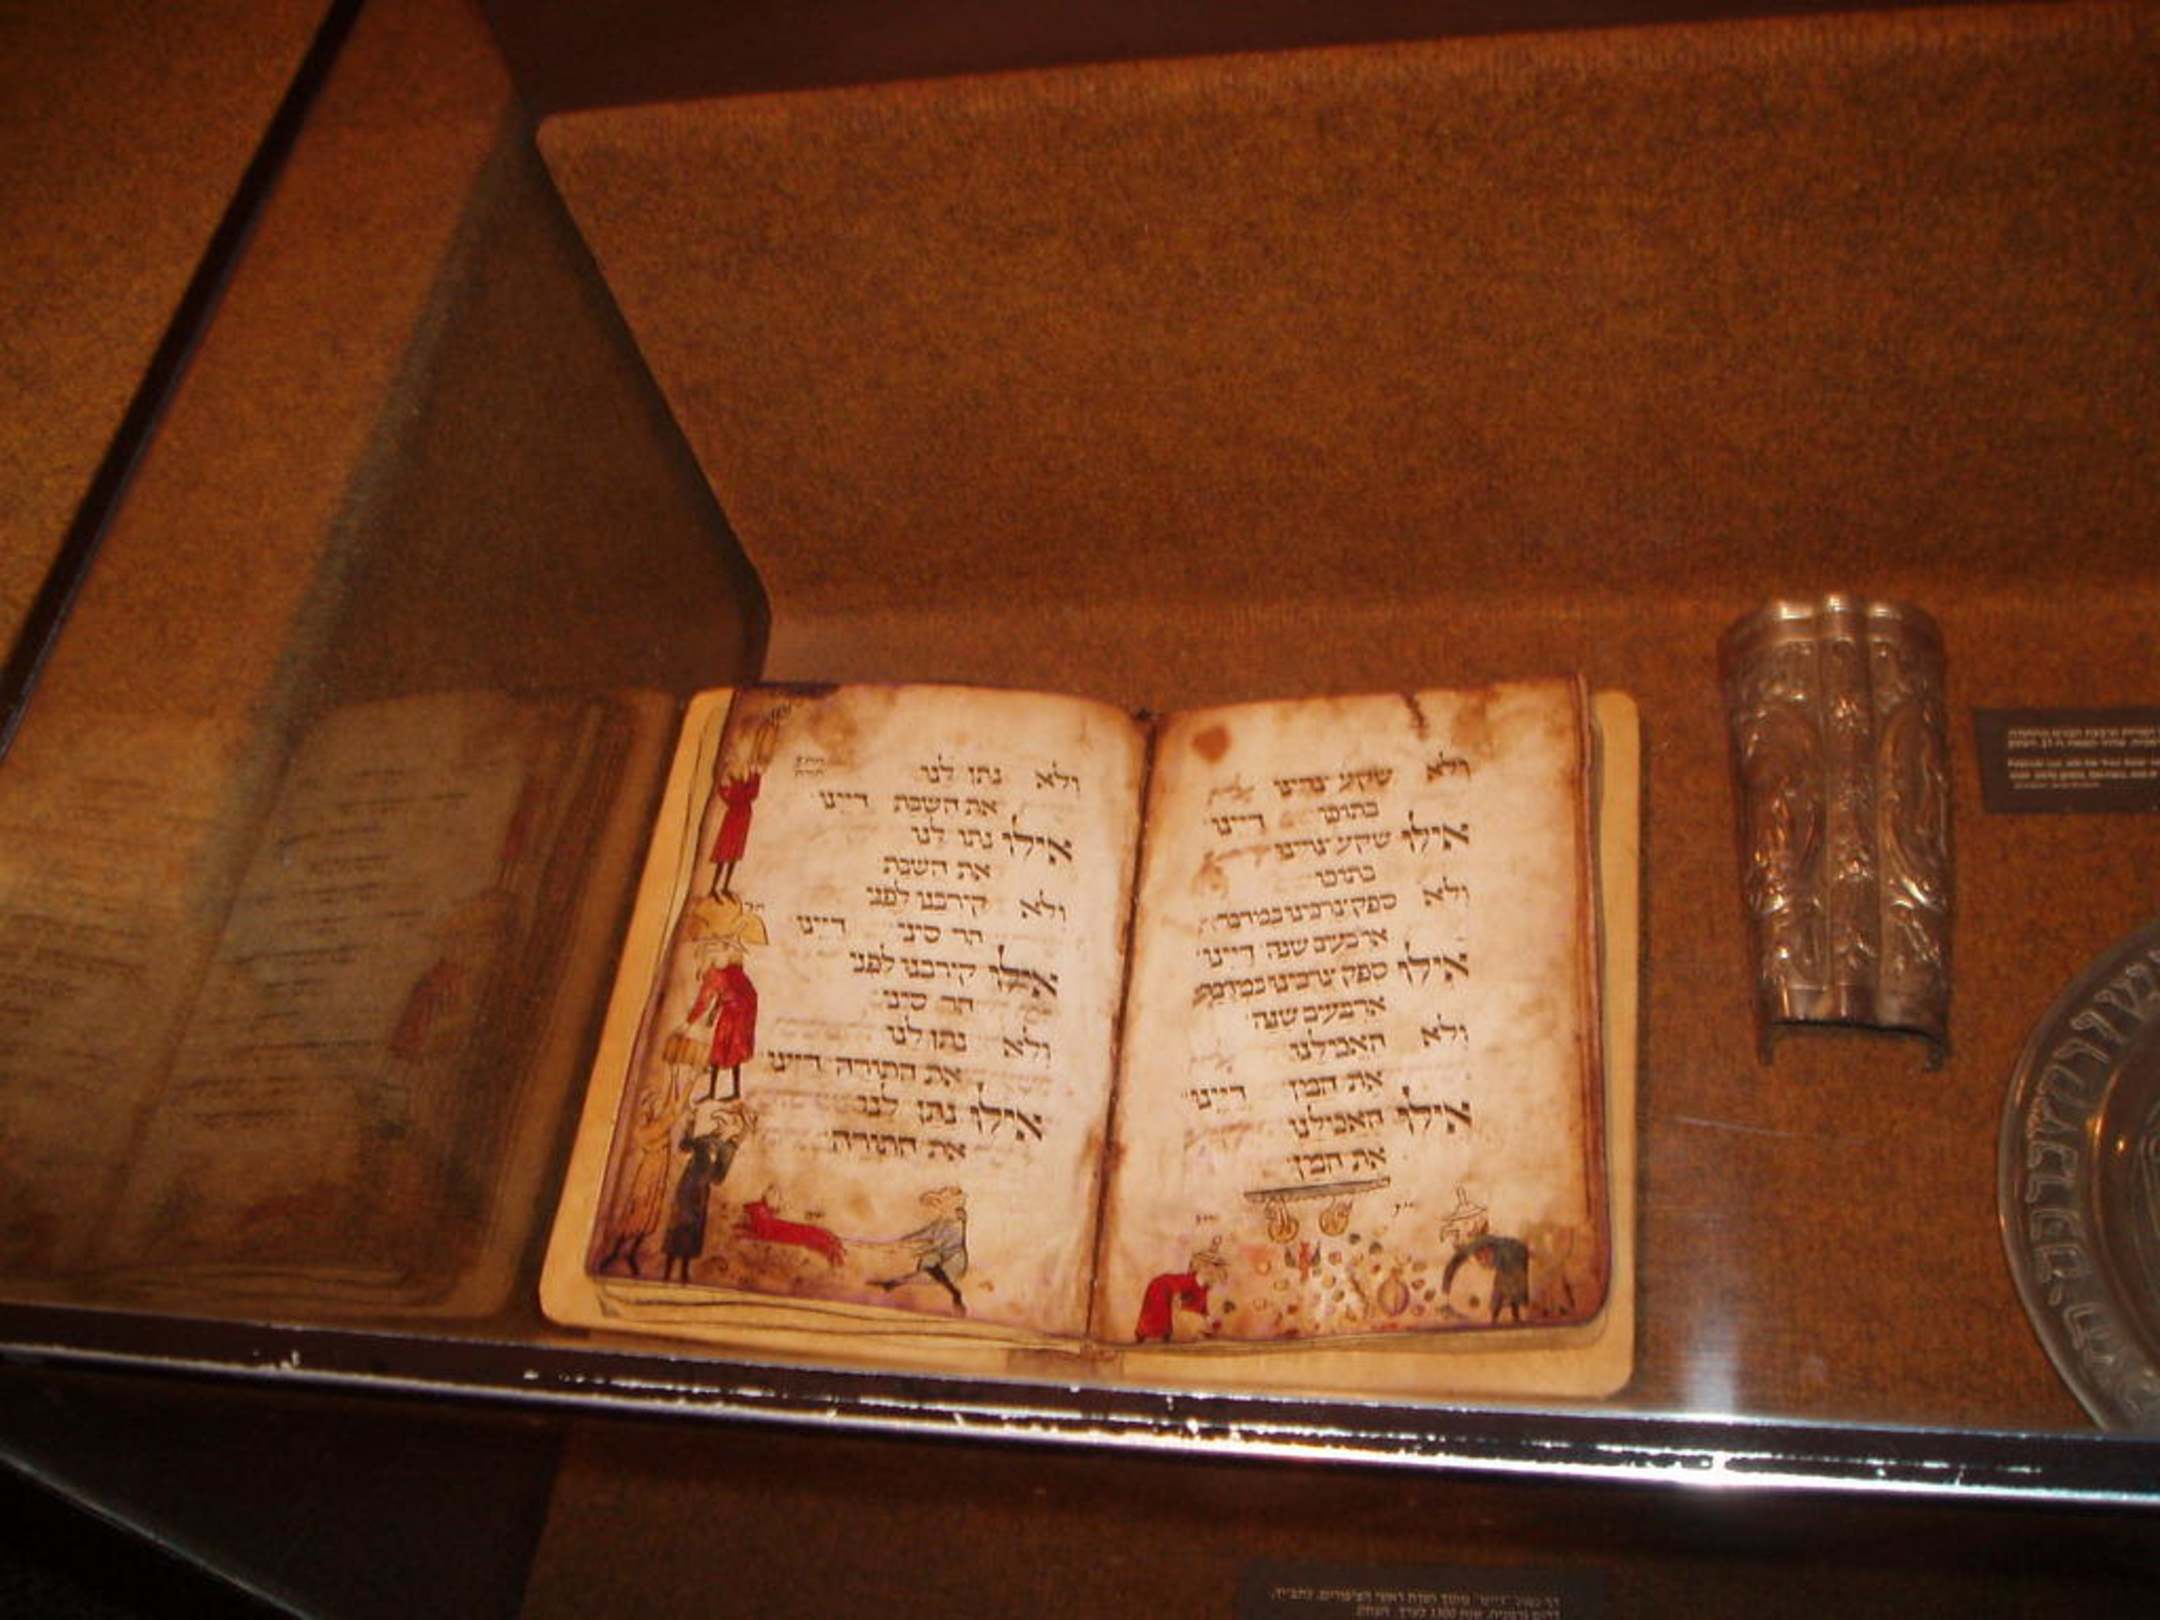 ולא שקע צרינו
בתוכו דיינו
אילו שקע צרינו
בתוכו
ולא ספק צרכינו במדבר
ארבעים שנה דיינו
אילו ספק צרכינו במדבר
ארבעים שנה
ולא האכילנו
את המן דיינו
אילו האכילנו
את המן
ולא נתן לנו
את השבת דיינו
אילו נתן לנו
את השבת
ולא קירבנו לפני
הר סיני דיינו
אילו קירבנו לפני
הר סיני
ולא נתן לנו
את התורה דיינו
אילו נתן לנו
את התורה
דף כפול "דיינו" מתוך הגדת ראשי הציפורים,
דרום גרמניה, שנת 1300 לערך